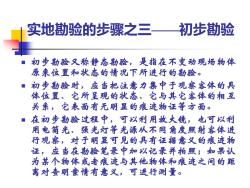 实地勘验的步骤之三——初步勘验
初步勘验又称静态勘验，是指在不变动现场物体
原来位置和状态的情况下所进行的勘验。
初步勘验时，应当把注意力集中于观察客体的具
体位置、它所呈现的状态、它与其它客体的相互
关系，它表面有无明显的痕迹物证等方面。
在初步勘验过程中，可以利用放大镜，也可以利
用电筒光、强光灯等光源从不同角度照射客体进
行观察，对于明显可见的具有证据意义的痕迹物
证，应当在勘验笔录中加以记录并拍照；如果认
为某个物体或者痕迹与其他物体和痕迹之间的距
离对查明案情有意义，可进行测量。